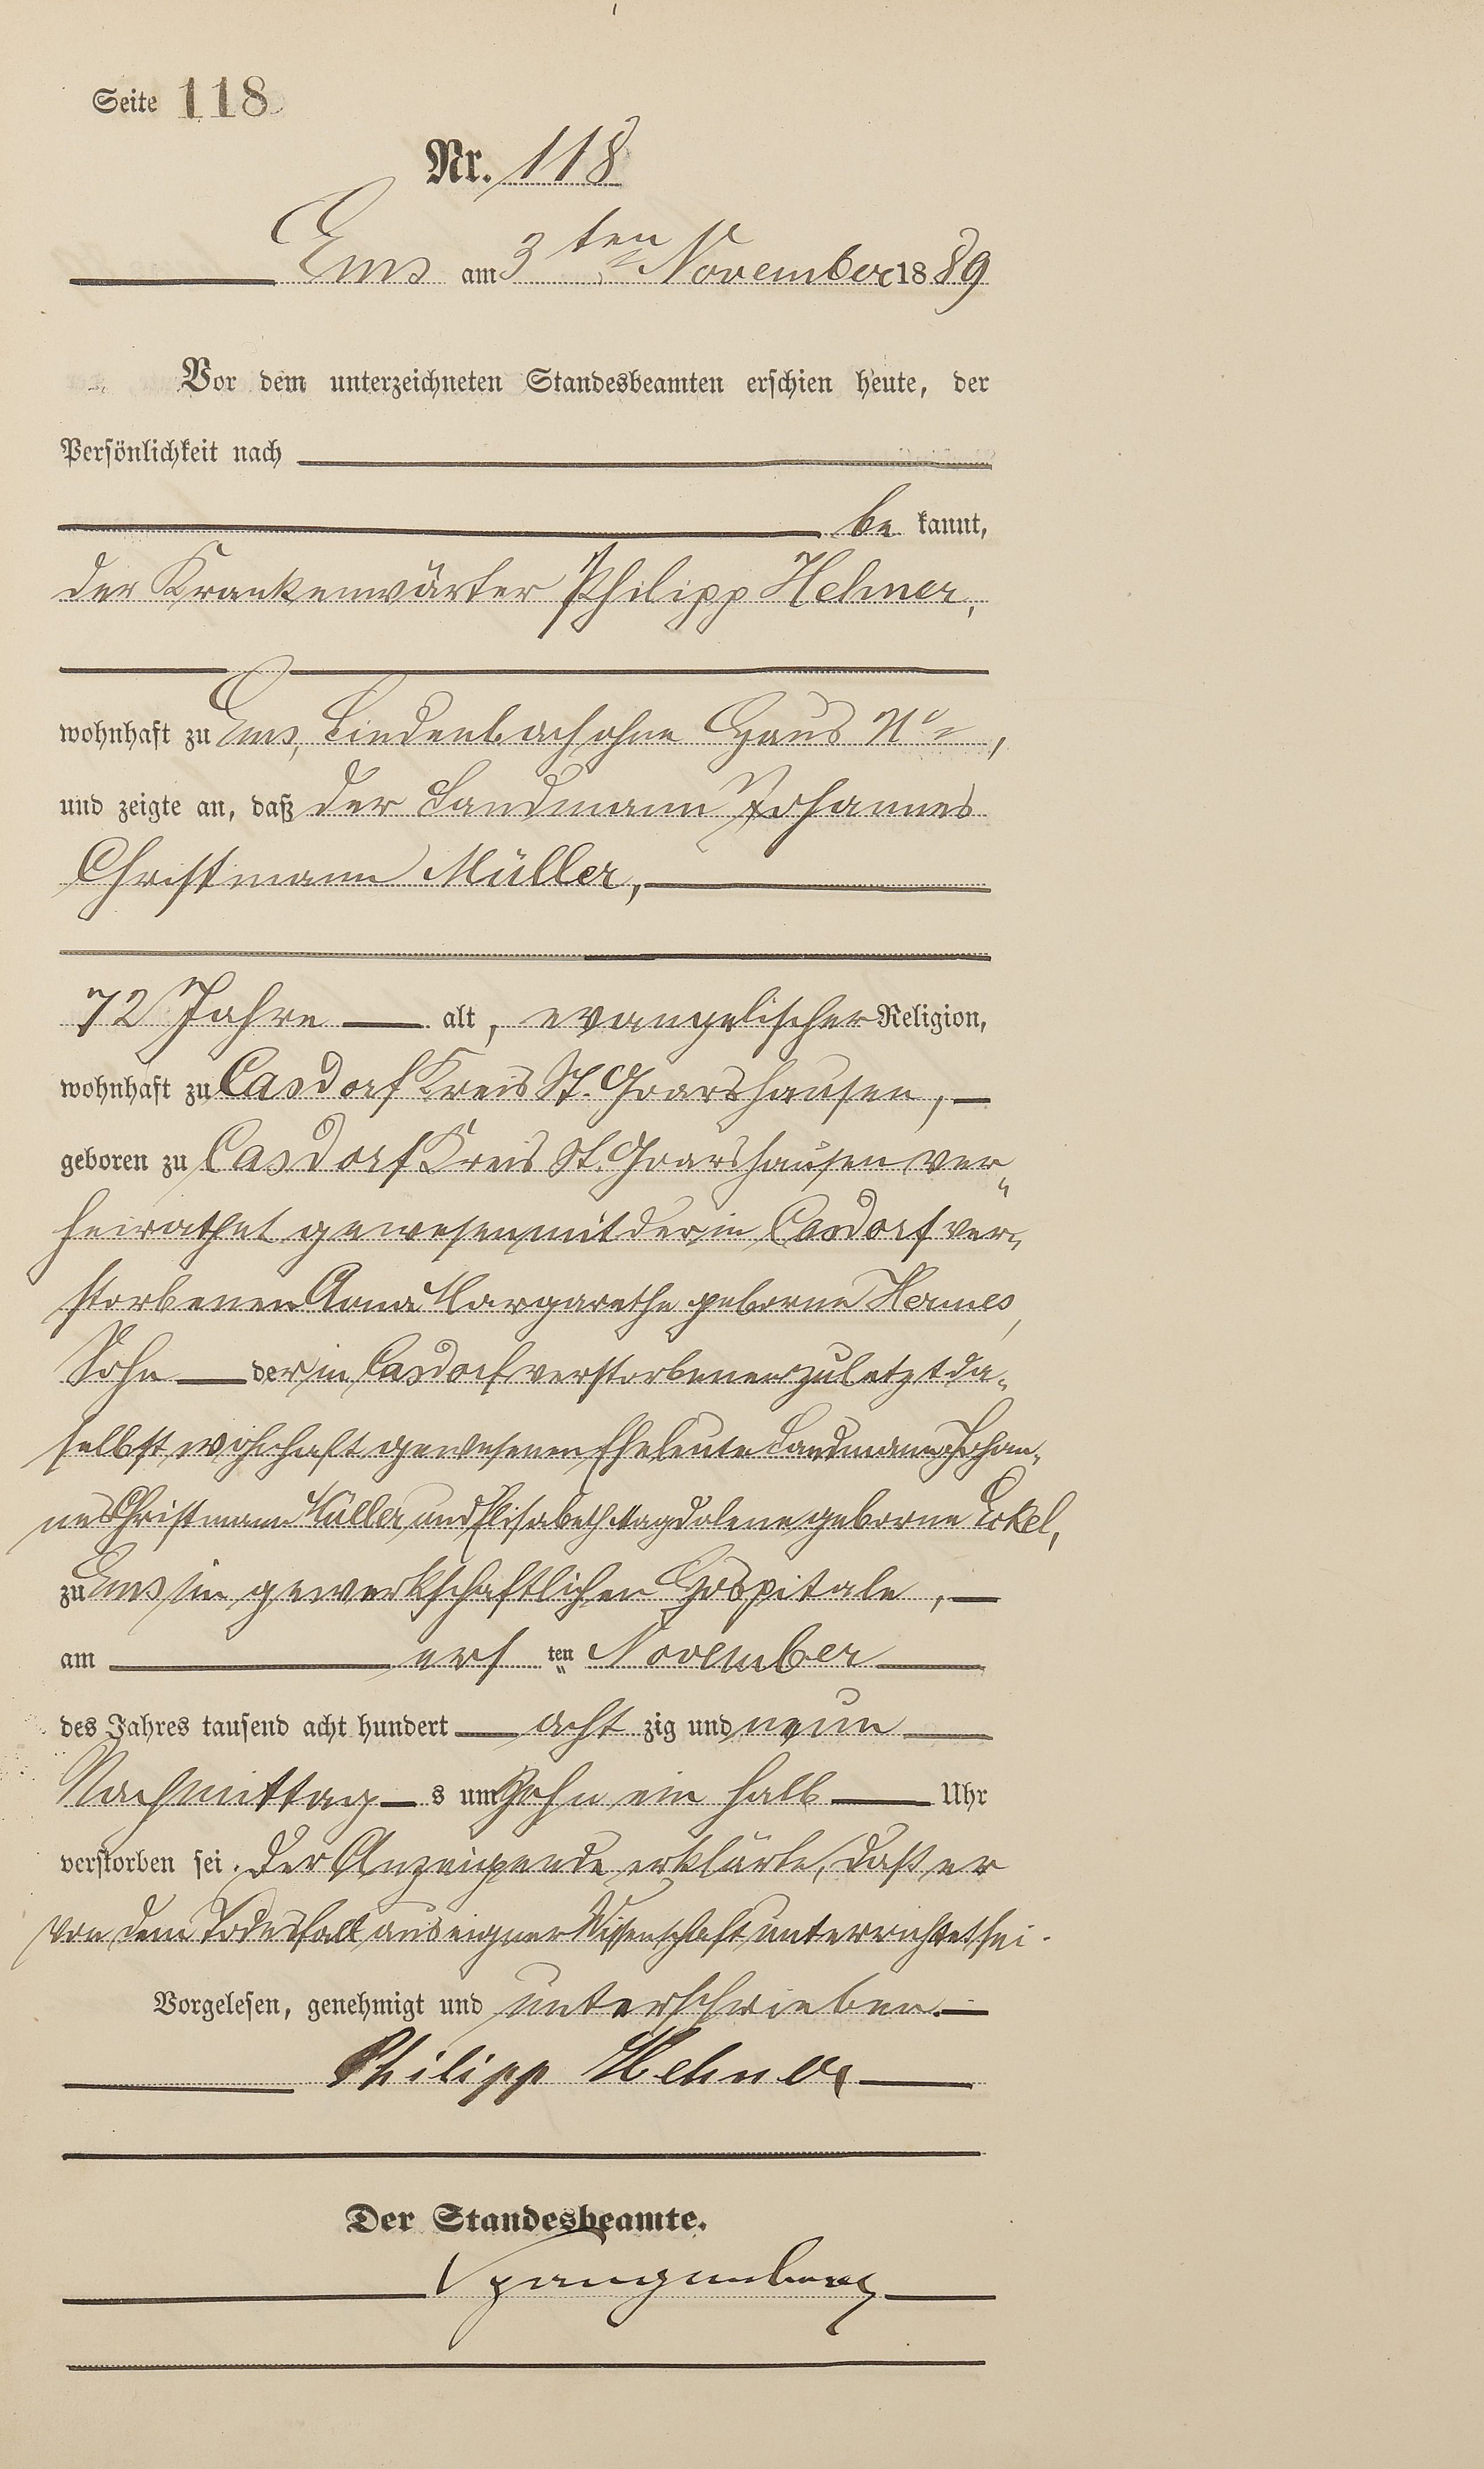 Seite 118
Nr. 118
Ems am 3ten November 1889
Vor dem unterzeichneten Standesbeamten erschien heute, der
Persönlichkeit nach
be kannt,
der Krankenwärter Philipp Hehner,
wohnhaft zu Ems, Lindenbach ohne Haus No
und zeigte an, daß der Landmann Johannes
Christmann Müller,
72 Jahre alt, evangelischer Religion,
wohnhaft zu Casdorf Kreis St. Goarshausen,
geboren zu Casdorf Kreis St. Goarshausen ver„
heirathet gewesen mit der in Casdorf ver„
storbenen Anna Margarethe geborne Hermes,
Sohn der in Casdorf verstorbenen zuletzt da„
selbst wohnhaft gewesenen Eheleute Landmann Johan„
nes Christmann Müller und Elisabeth Magdalene geborne Eckel,
zu Ems im gewerkschaftlichen Hospitale,
am ersten November
des Jahres tausend acht hundert acht zig und neun
Nachmittag s um Zehn ein halb Uhr
verstorben sei. Der Anzeigende erklärte, daß er
von dem Todesfall aus eigner Wissenschaft unterrichtet sei.
Vorgelesen, genehmigt und unterschrieben.
Philipp Hehner
Der Standesbeamte.
Spangenberg